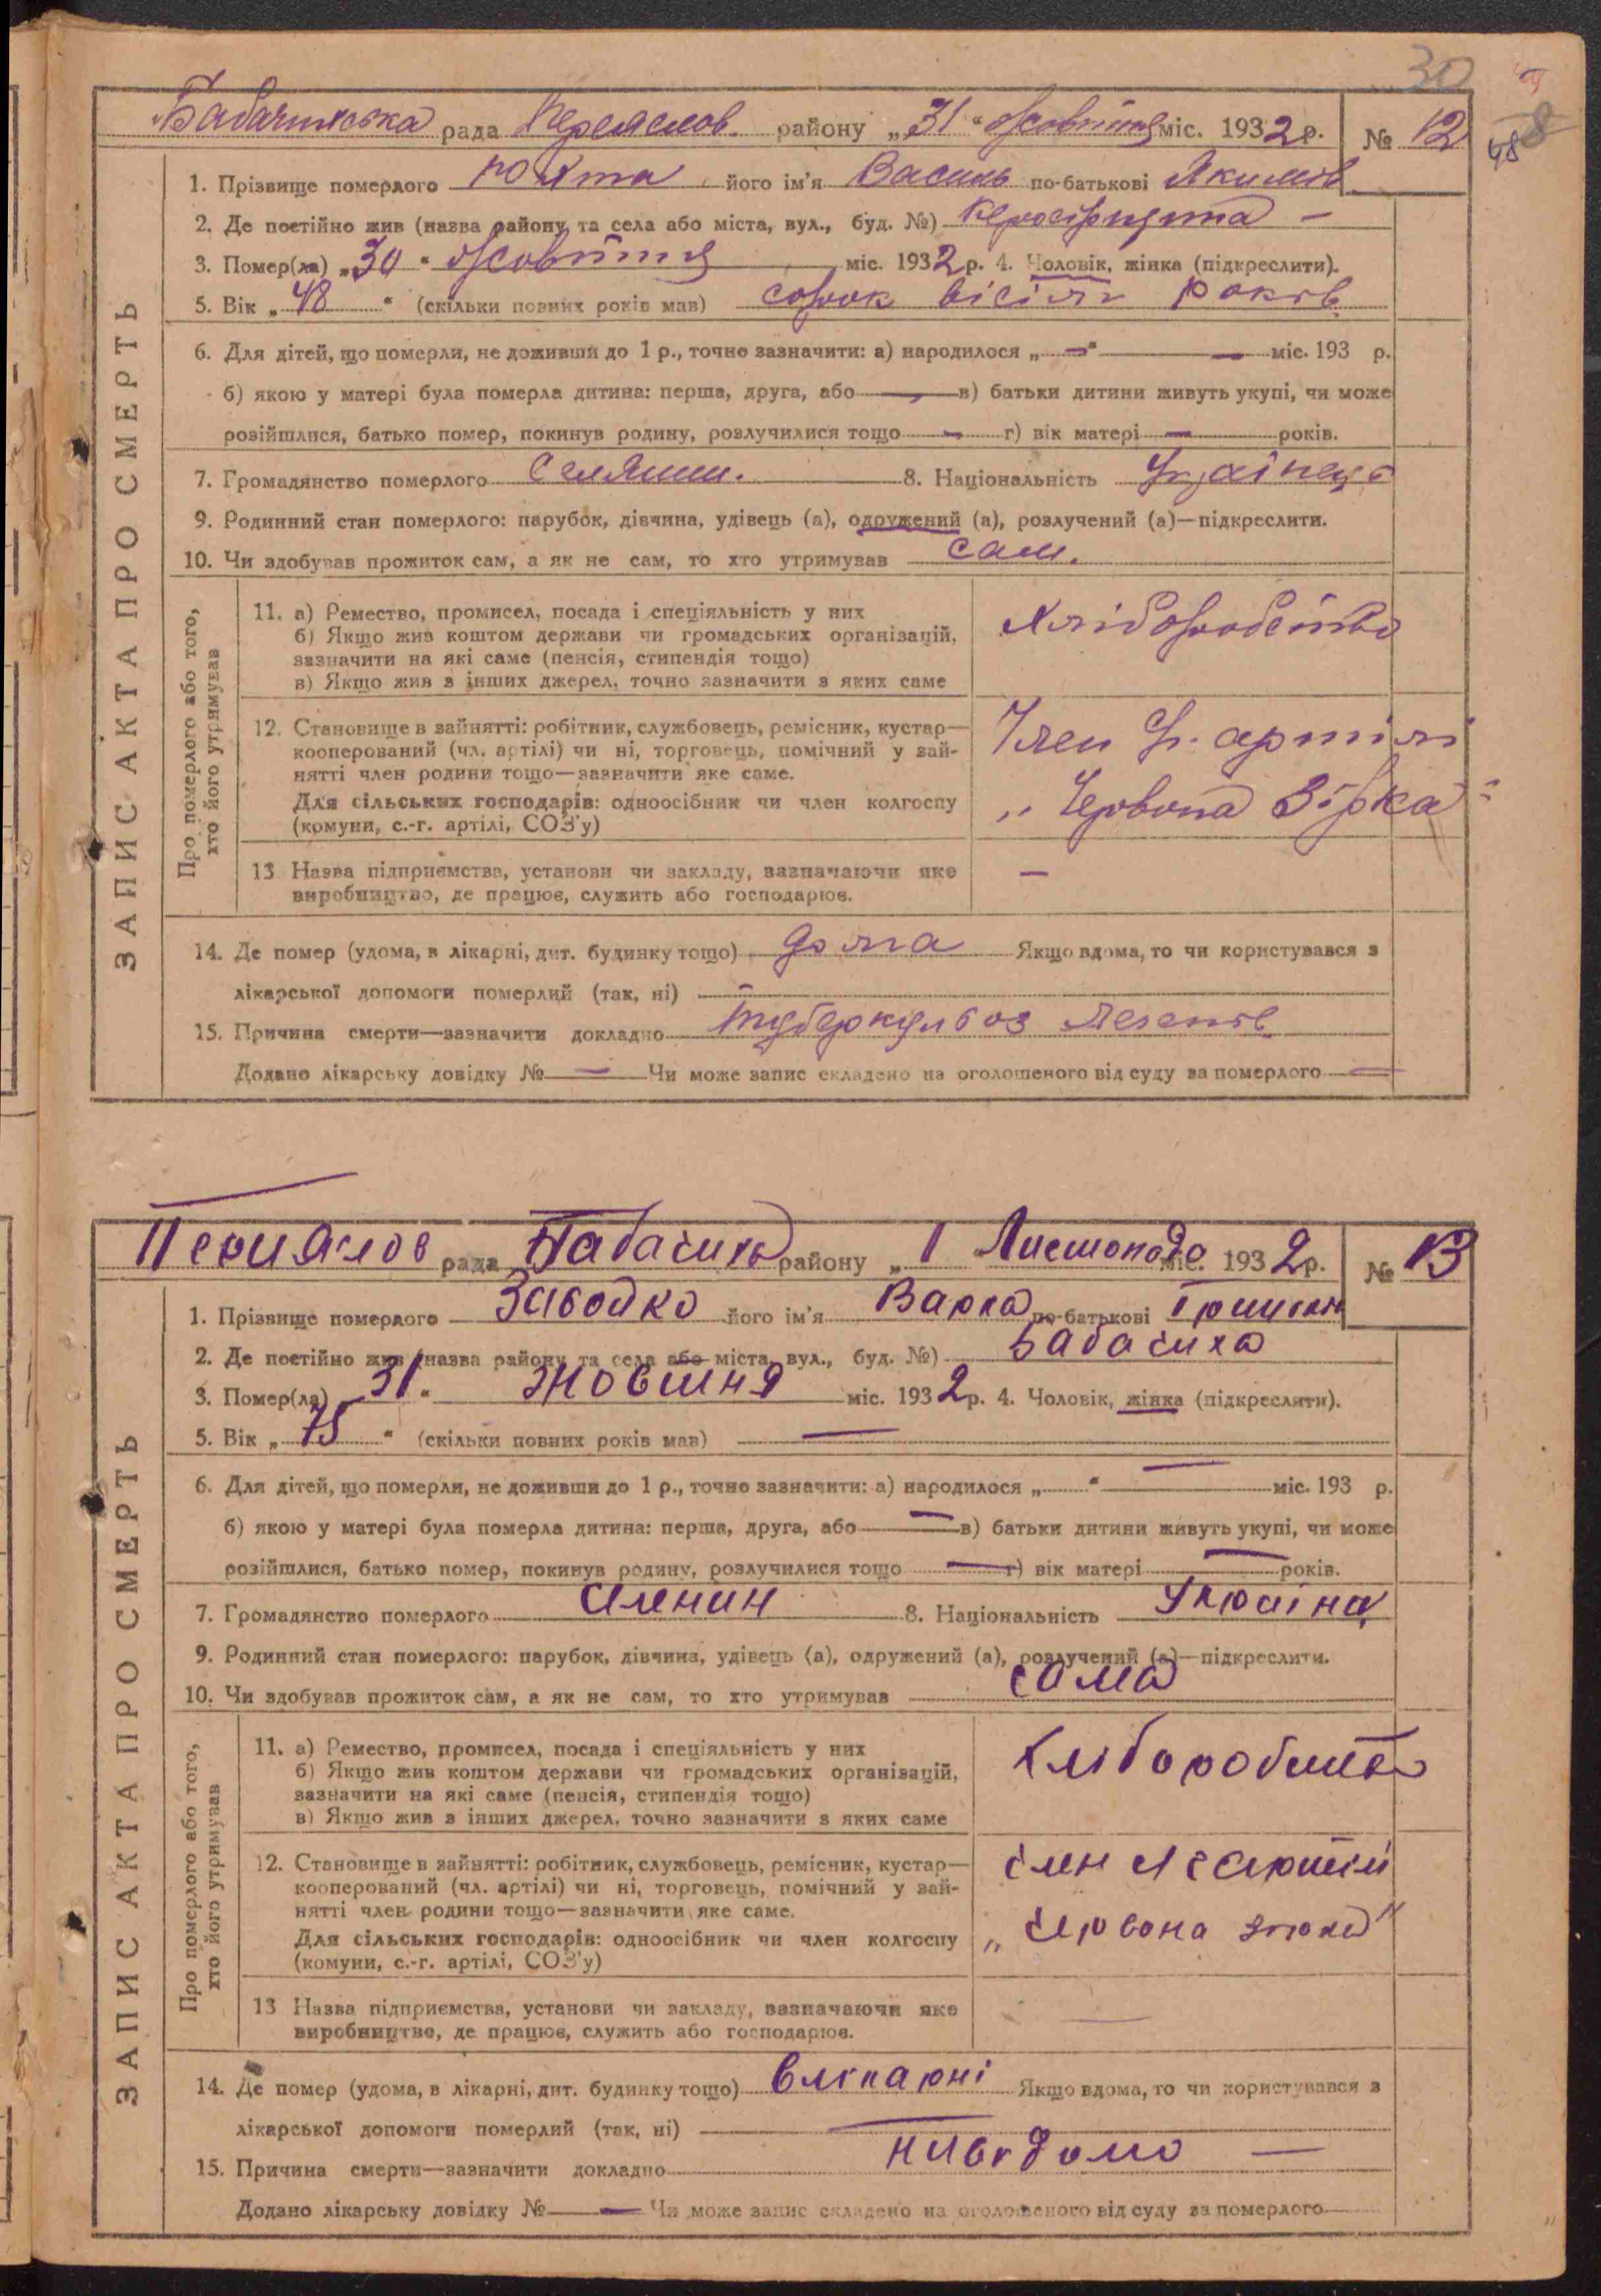 30
48
Бабачихська рада Переяслов. району „31“ жовтня міс. 1932 р. № 12
1. Прізвище померлого його ім'я Василь по-батькові Якимов
2. Де постійно жив (назва району, та села або міста, вул., буд. №) –
3. Помер(ла) „30“ жовтня міс. 1932 р. 4. Чоловік, жінка (підкреслити).
5. Вік „48“ (скільки повних років мав) сорок вісім років
6. Для дітей, що померли, не доживши до 1 р., точно зазначити: а) народилося „—“ — міс. 193 р.
б) якою у матері була померла дитина: перша, друга, або — в) батьки дитини живуть укупі, чи може
розійшлися, батько помер, покинув родину, розлучилися тощо — г) вік матері — років.
7. Громадянство померлого Селянин. 8. Національність Українець
9. Родинний стан померлого: парубок, дівчина, удівець (а), одружений (а), розлучений (а)—підкреслити.
10. Чи здобував прожиток сам, а як не сам, то хто утримував сам.
ЗАПИС АКТА ПРО СМЕРТЬ
Про померлого або того,
хто його утримував
11. а) Ремество, промисел, посада і спеціяльність у них
б) Якщо жив коштом держави чи громадських організацій,
зазначити на які саме (пенсія, стипендія тощо)
в) Якщо жив з інших джерел, точно зазначити з яких саме
Хліборобство
12. Становище в зайнятті: робітник, службовець, ремісник, кустар—
кооперований (чл. артілі) чи ні, торговець, помічний у зай-
нятті член родини тощо—зазначити яке саме.
Для сільських господарів: одноосібник чи член колгоспу
(комуни, с.-г. артілі, СОЗ'у)
Член артілі
„Червона Зірка“
13 Назва підприємства, установи чи закладу, зазначаючи яке
виробництво, де працює, служить або господарює.
—
14. Де помер (удома, в лікарні, дит. будинку тощо) дома Якщо вдома, то чи користувався з
лікарської допомоги померлий (так, ні) —
15. Причина смерти—зазначити докладно туберкульоз легенів
Додано лікарську довідку № — Чи може запис складено на оголошеного від суду за померлого —
рада Бабачиха району „1 Листопада міс. 1932 р. № 13
1. Прізвище померлого Забойко його ім'я Варка по-батькові
2. Де постійно жив (назва району та села або міста, вул., буд. №) Бабачиха
3. Помер(ла) 31 “ жовтня міс. 1932 р. 4. Чоловік, жінка (підкреслити).
5. Вік „75“ (скільки повних років мав) —
6. Для дітей, що померли, не доживши до 1 р., точно зазначити: а) народилося „ “ — міс. 193 р.
б) якою у матері була померла дитина: перша, друга, або — в) батьки дитини живуть укупі, чи може
розійшлися, батько помер, покинув родину, розлучилися тощо — г) вік матері — років.
7. Громадянство померлого 8. Національність
9. Родинний стан померлого: парубок, дівчина, удівець (а), одружений (а), розлучений (а)—підкреслити.
10. Чи здобував прожиток сам, а як не сам, то хто утримував сама
ЗАПИС АКТА ПРО СМЕРТЬ
Про померлого або того,
хто його утримував
11. а) Ремество, промисел, посада і спеціяльність у них
б) Якщо жив коштом держави чи громадських організацій,
зазначити на які саме (пенсія, стипендія тощо)
в) Якщо жив з інших джерел, точно зазначити з яких саме
12. Становище в зайнятті: робітник, службовець, ремісник, кустар—
кооперований (чл. артілі) чи ні, торговець, помічний у зай-
нятті член родини тощо—зазначити яке саме.
Для сільських господарів: одноосібник чи член колгоспу
(комуни, с.-г. артілі, СОЗ'у)
член
„червона
13 Назва підприємства, установи чи закладу, зазначаючи яке
виробництво, де працює, служить або господарює.
—
14. Де помер (удома, в лікарні, дит. будинку тощо) в лікарні Якщо вдома, то чи користувався з
лікарської допомоги померлий (так, ні) —
15. Причина смерти—зазначити докладно —
Додано лікарську довідку № — Чи може запис складено на оголошеного від суду за померлого